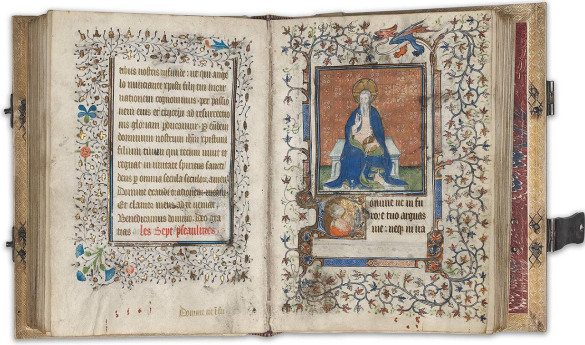 tibus nostris infunde: ut qui ange
lo nunciante xpisti filij tui incar
nationem cognouimus. per passio
nem eius et crucem ad resurrectio
nis gloriam perducamur. p eundem
dominum nostrum ihm xpistum
filium tuum qui tecum uiuit et
regnat in unitate spiritus sancti
deus p omnia secula seculorum amen
Domine exaudi orationem meam
Et clamor meus ad te ueniat
Benedicamus domino. Deo gra
tias les sept pseaulmes
Domine ne in fu
Domine ne in fu
rore tuo arguas
me: neqz in ira